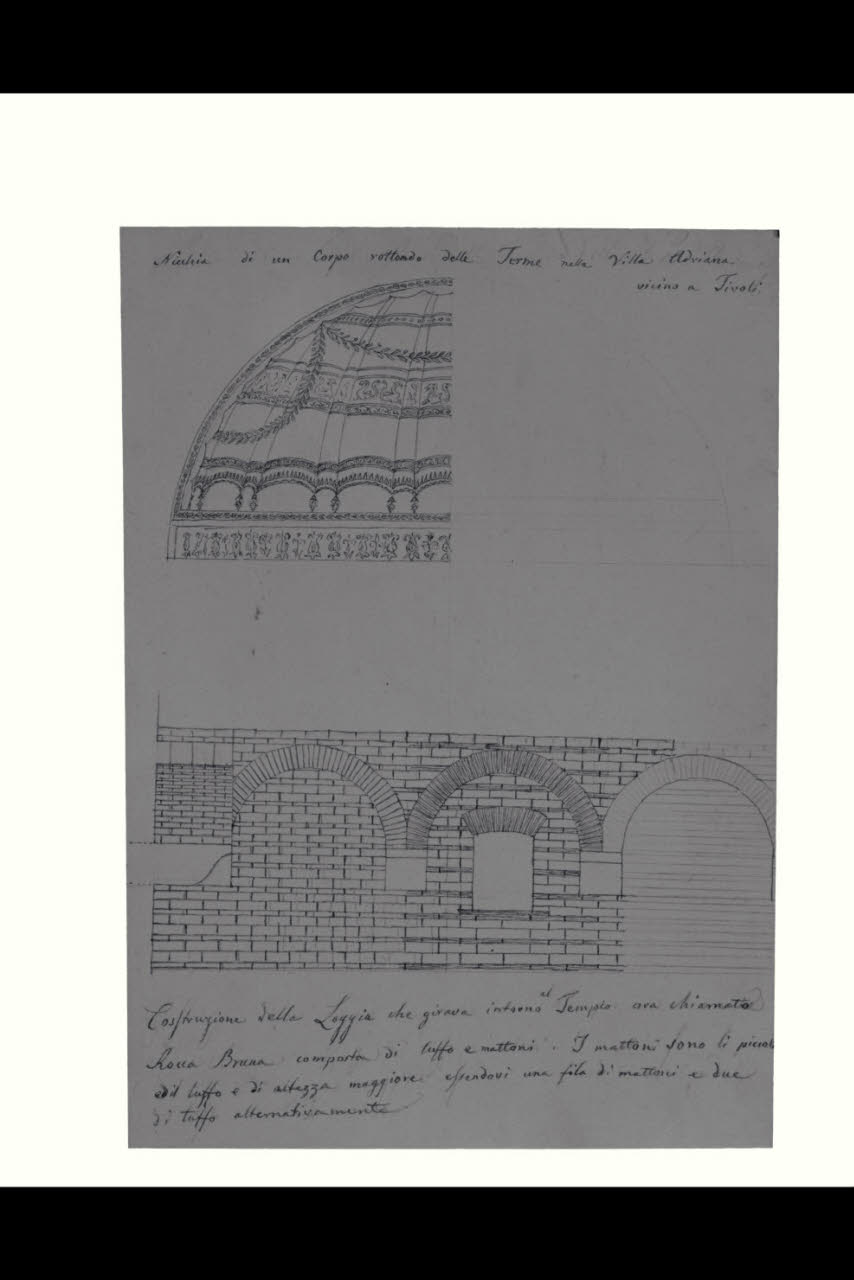 Nichia di un Corpo rottondo delle Terme nella Villa Adriana
vicino a Tivoli.
Costruzione della Loggia che girava intorno al Tempio ora chiamato
Rocca Bruna composta di tuffo e mattoni. I mattoni sono li piccoli
ed il tuffo e di altezza maggiore essendovi una fila di mattoni e due
di tuffo alternativamente